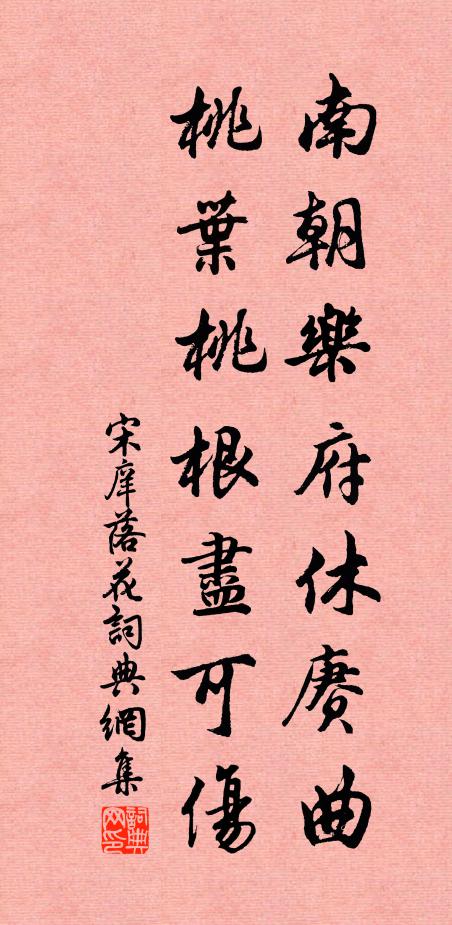 南朝樂府休賡曲
桃葉桃根盡可傷
宋庠落花詞典網集
詞典网印